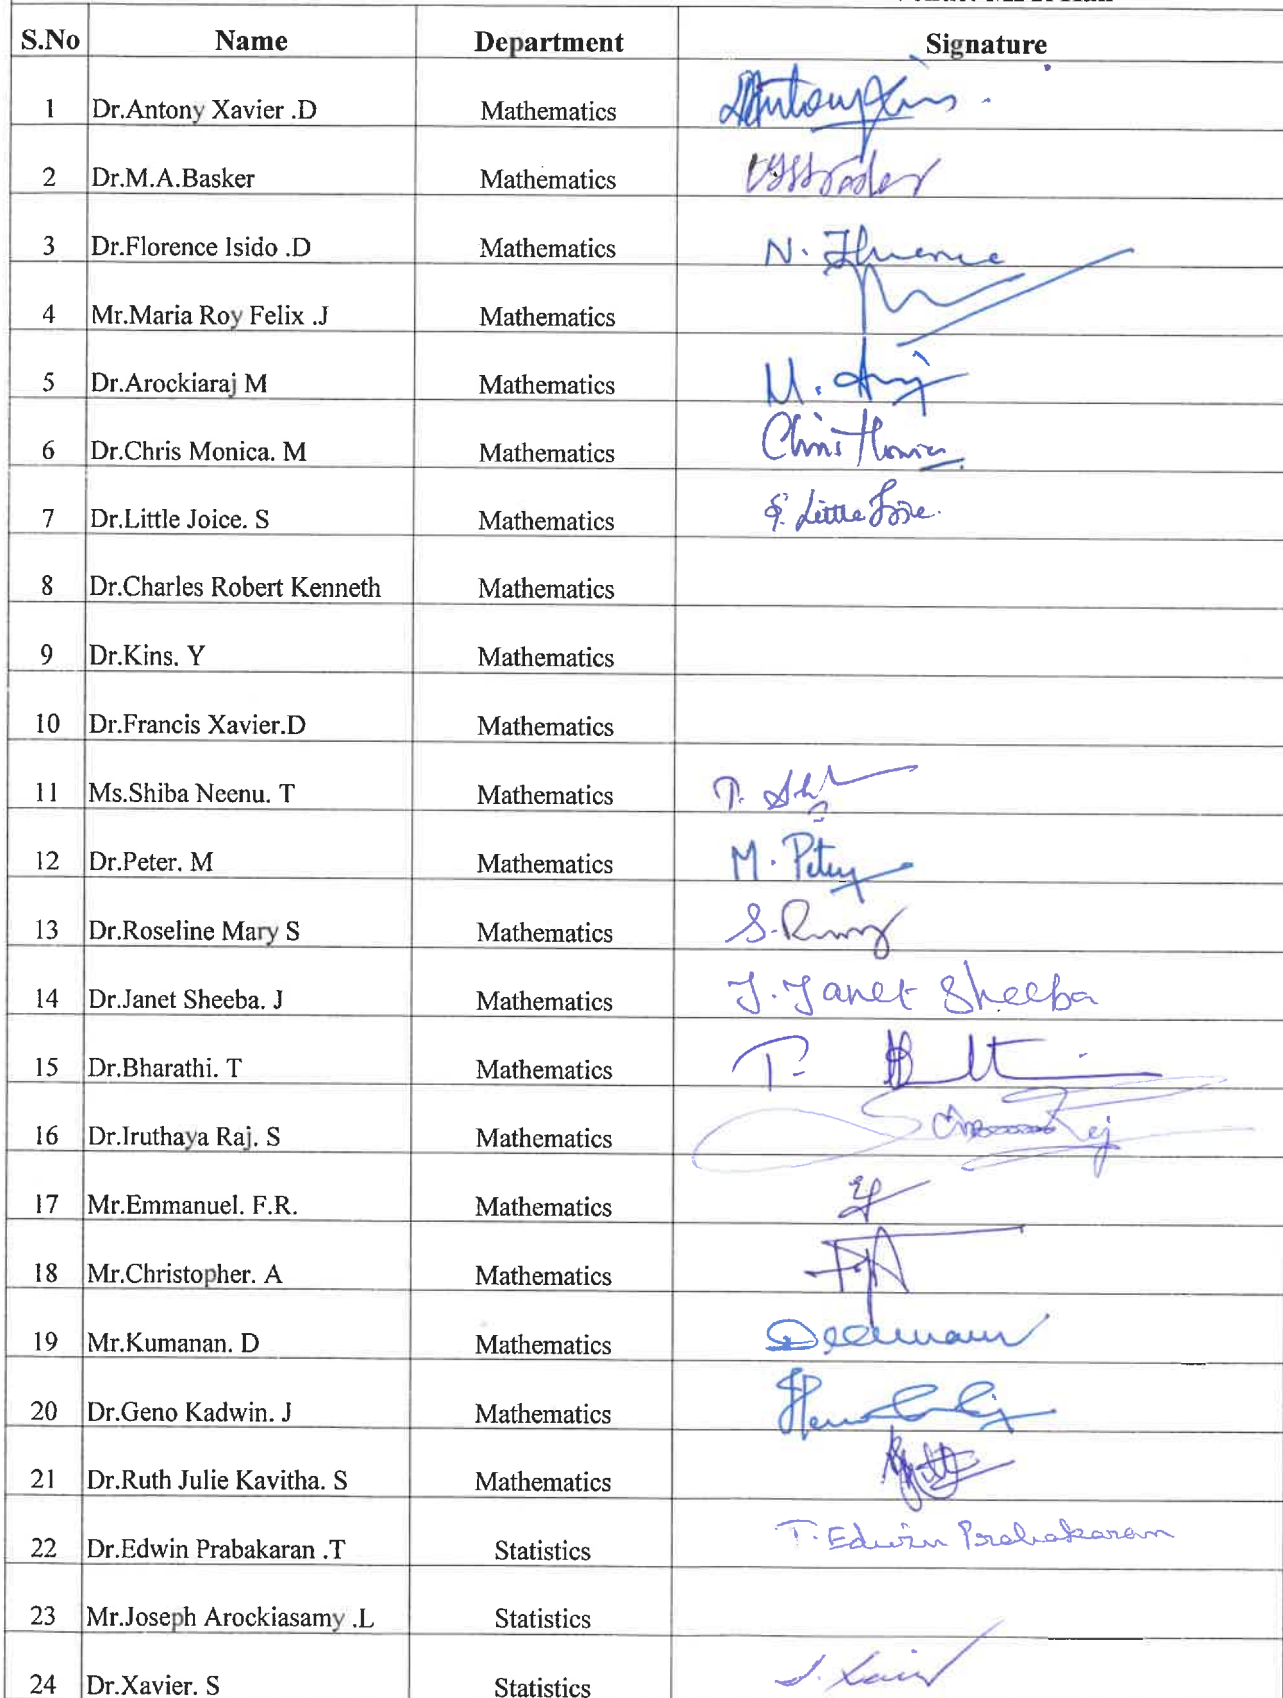 S.No Name Department Signature
1 Dr.Antony Xavier .D Mathematics
2 Dr.M.A.Basker Mathematics
3 Dr.Florence Isido .D Mathematics N.
4 Mr.Maria Roy Felix .J Mathematics
5 Dr.Arockiaraj M Mathematics M.
6 Dr.Chris Monica. M Mathematics Chris
7 Dr.Little Joice. S Mathematics S. Little Joice.
8 Dr.Charles Robert Kenneth Mathematics
9 Dr.Kins. Y Mathematics
10 Dr.Francis Xavier.D Mathematics
11 Ms.Shiba Neenu. T Mathematics T.
12 Dr.Peter. M Mathematics M. Peter
13 Dr.Roseline Mary S Mathematics S.
14 Dr.Janet Sheeba. J Mathematics J. Janet Sheeba
15 Dr.Bharathi. T Mathematics T.
16 Dr.Iruthaya Raj. S Mathematics
17 Mr.Emmanuel. F.R. Mathematics
18 Mr.Christopher. A Mathematics
19 Mr.Kumanan. D Mathematics
20 Dr.Geno Kadwin. J Mathematics
21 Dr.Ruth Julie Kavitha. S Mathematics
22 Dr.Edwin Prabakaran .T Statistics T. Edwin Prabakaran
23 Mr.Joseph Arockiasamy .L Statistics
24 Dr.Xavier. S Statistics